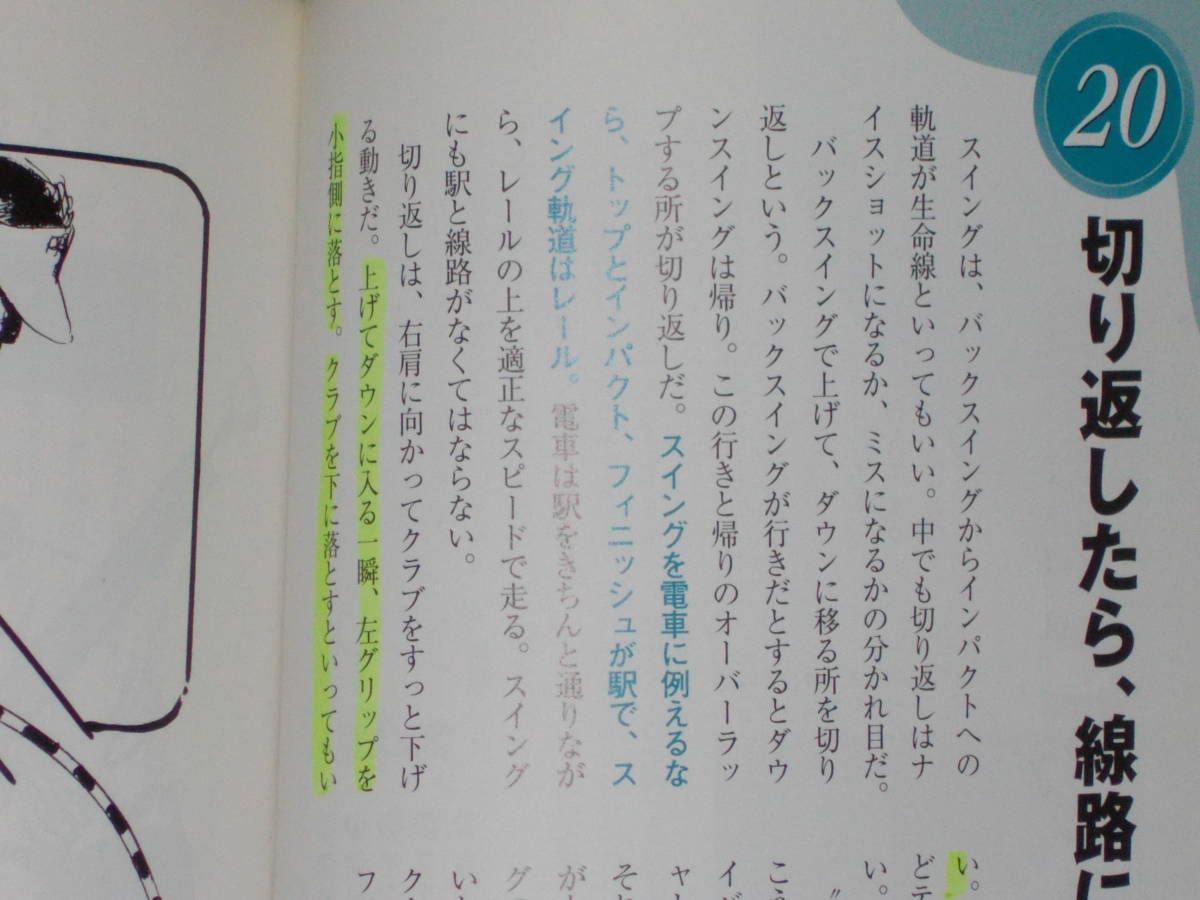 20
切り返したら、線路に
スイングは、バックスイングからインパクトへの
軌道が生命線といってもいい。中でも切り返しはナ
イスショットになるか、ミスになるかの分かれ目だ。
バックスイングで上げて、ダウンに移る所を切り
返しという。バックスイングが行きだとするとダウ
ンスイングは帰り。この行きと帰りのオーバーラッ
プする所が切り返しだ。スイングを電車に例えるな
ら、トップとインパクト、フィニッシュが駅で、ス
イング軌道はレール。電車は駅をきちんと通りなが
ら、レールの上を適正なスピードで走る。スイング
にも駅と線路がなくてはならない。
切り返しは、右肩に向かってクラブをすっと下げ
る動きだ。上げてダウンに入る一瞬、左グリップを
小指側に落とす。クラブを下に落とすといってもい
い。
どテ
い。
〃
こう
イ
ャー
それ
が
グ
い
ク
フ